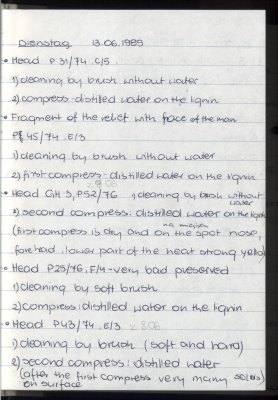 Dienstag 13.06.1989
• Head P 31/74 C/5
1) cleaning by brush without water
2) compress - distilled water on the lignin
• Fragment of the relief with face of the man
P 45/74 . E/3
1) cleaning by brush without water
2) first compress - distilled water on the lignin
• Head GH 3, P52/76 1) cleaning by brush without
water
2) second compress: distilled water on the lignin
(first compress is dry and on the spot nose,
forehead, lower part of the heat strong yellow)
• Head P25/76, F/4 - very bad preserved
1) cleaning by soft brush
2) compress: distilled water on the lignin
• Head P43/74 . E/3
1) cleaning by brush (soft and hard)
2) second compress: distilled water
(after the first compress very many
on surface